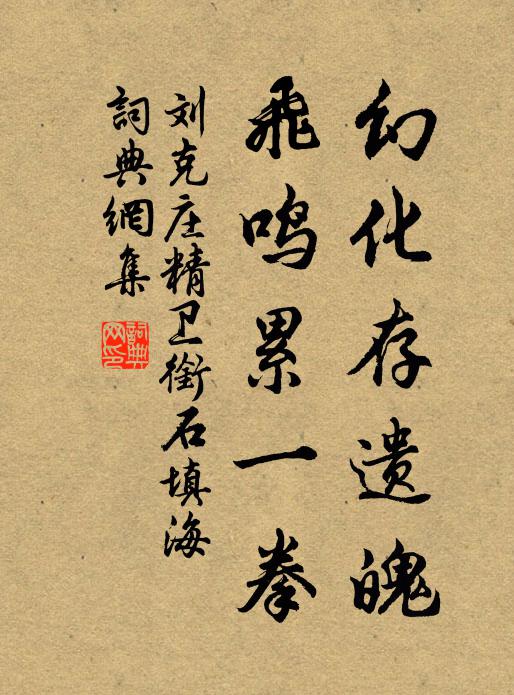 幻化存遗魄
飛鸣累一拳
刘克庄精卫銜石填海
詞典網集
詞典网印